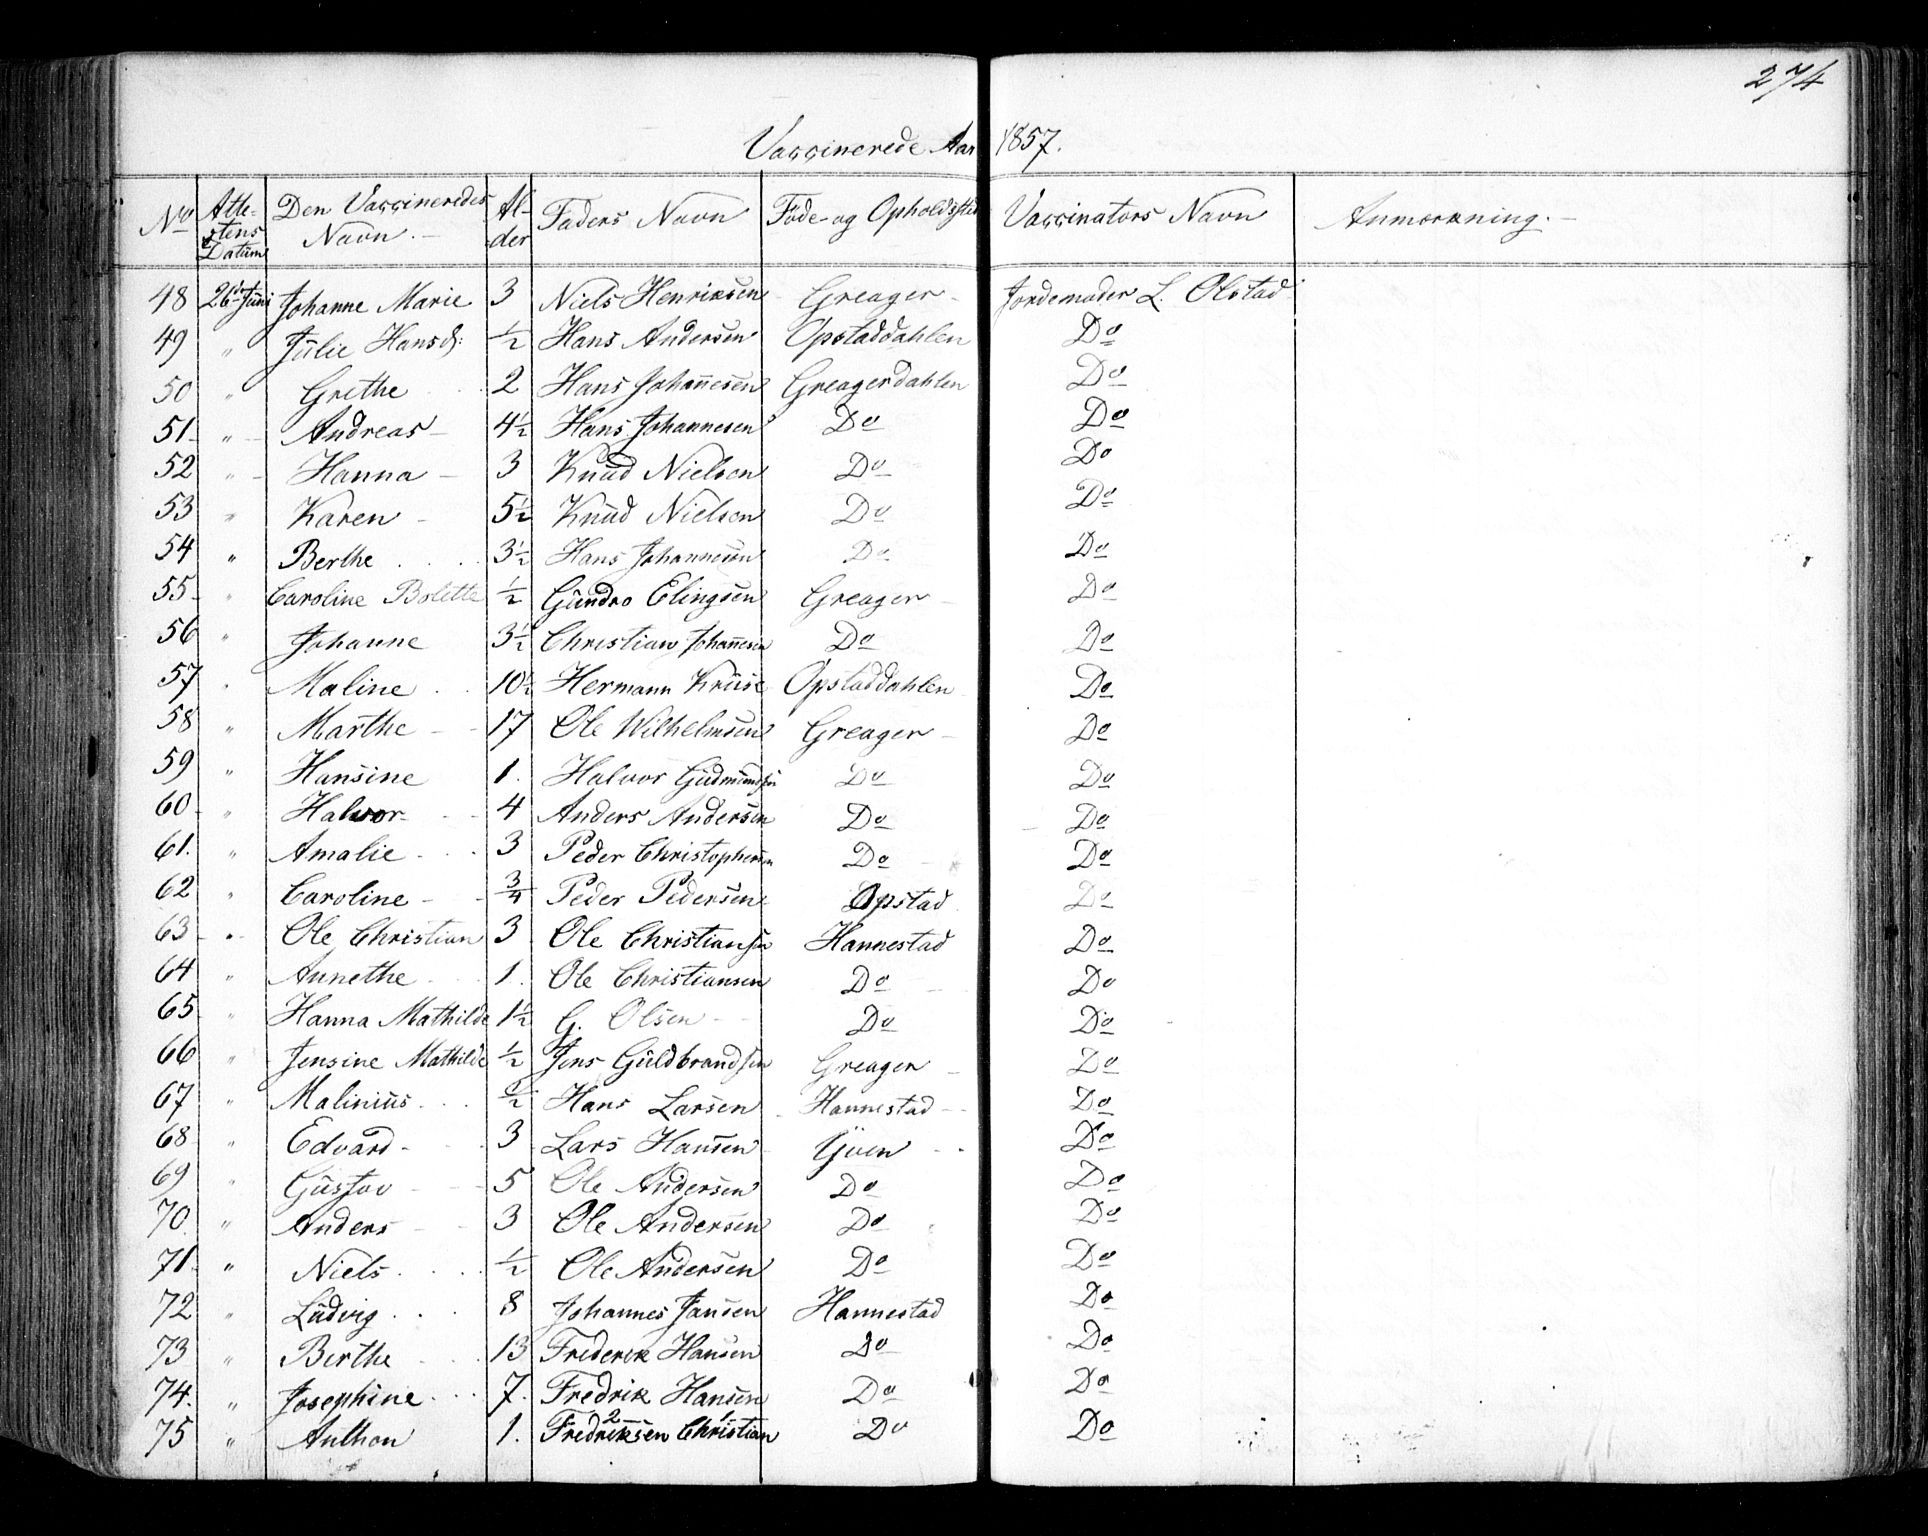 274
Vaccinerede Aar 1857.
No Atte-stens Datum Den Vaccineredes Navn. Al-der Faders Navn Føde- og Opholdssted Vaccinators Navn Anmærkning.
48 26de Juni Johanne Marie 3 Niels Henriksen Greager Jordemoder L. Olstad
49 " Julie Hansd: ½ Hans Andersen Opstaddahlen Do
50 " Grethe 2 Hans Johannesen Greagerdahlen Do
51 " Andreas 4½ Hans Johannesen Do Do
52 " Hanna 3 Knud Nielsen Do Do
53 " Karen 5½ Knud Nielsen Do Do
54 " Berthe 3½ Hans Johannesen Do Do
55 " Caroline Bolette ½ Gundro Elingsen Greager Do
56 " Johanne 3½ Christian Johannesen Do Do
57 " Maline 10½ Hermann Kruse Opstaddahlen Do
58 " Marthe 17 Ole Wilhelmsen Greager Do
59 " Hansine 1. Halvor Gudmundsen Do Do
60 " Halvor 4 Anders Andersen Do Do
61. " Amalie 3 Peder Christophersen Do Do
62 " Caroline ¾ Peder Pedersen Opstad Do
63 " Ole Christian 3 Ole Christiansen Hannestad Do
64 " Annethe 1. Ole Christiansen Do Do
65 " Hanna Mathilde 1½ G. Olsen Do Do
66 " Jensine Mathilde ½ Jens Guldbrandsen Greager Do
67 " Malinius ½ Hans Larsen Hannestad Do
68 " Edvard 3 Lars Hansen Yven Do
69 " Gustav 5 Ole Andersen Do Do
70 " Anders 3 Ole Andersen Do Do
71 " Niels ½ Ole Andersen Do Do
72 " Ludvig 8 Johannes Jansen Hannestad Do
73 " Berthe 13 Frederik Hansen Do Do
74. " Josephine 7. Fredrik Hansen Do Do
75 " Anthon 1. Fredriksen Christian Do Do